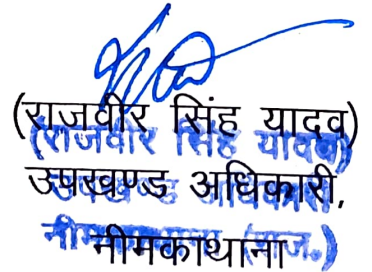 (राजवीर सिंह यादव)
(राजवीर सिंह यादव)
उपखण्ड अधिकारी,
उपखण्ड अधिकारी
नीमकाथाना
नीमकाथाना (राज.)